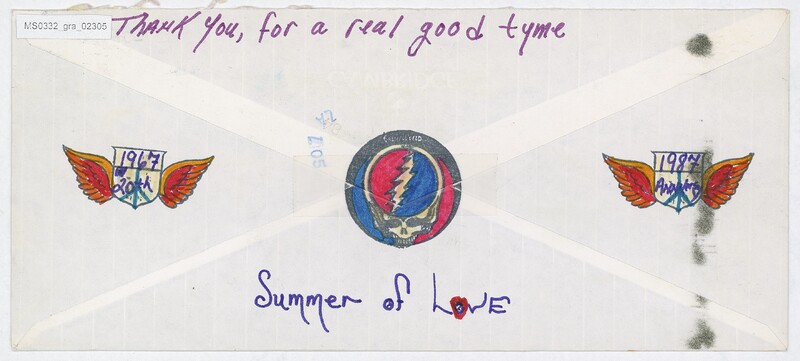 MS0332_gra_02305
Thank You, for a real good tyme
1967
20th
1987
Summer of LoVE